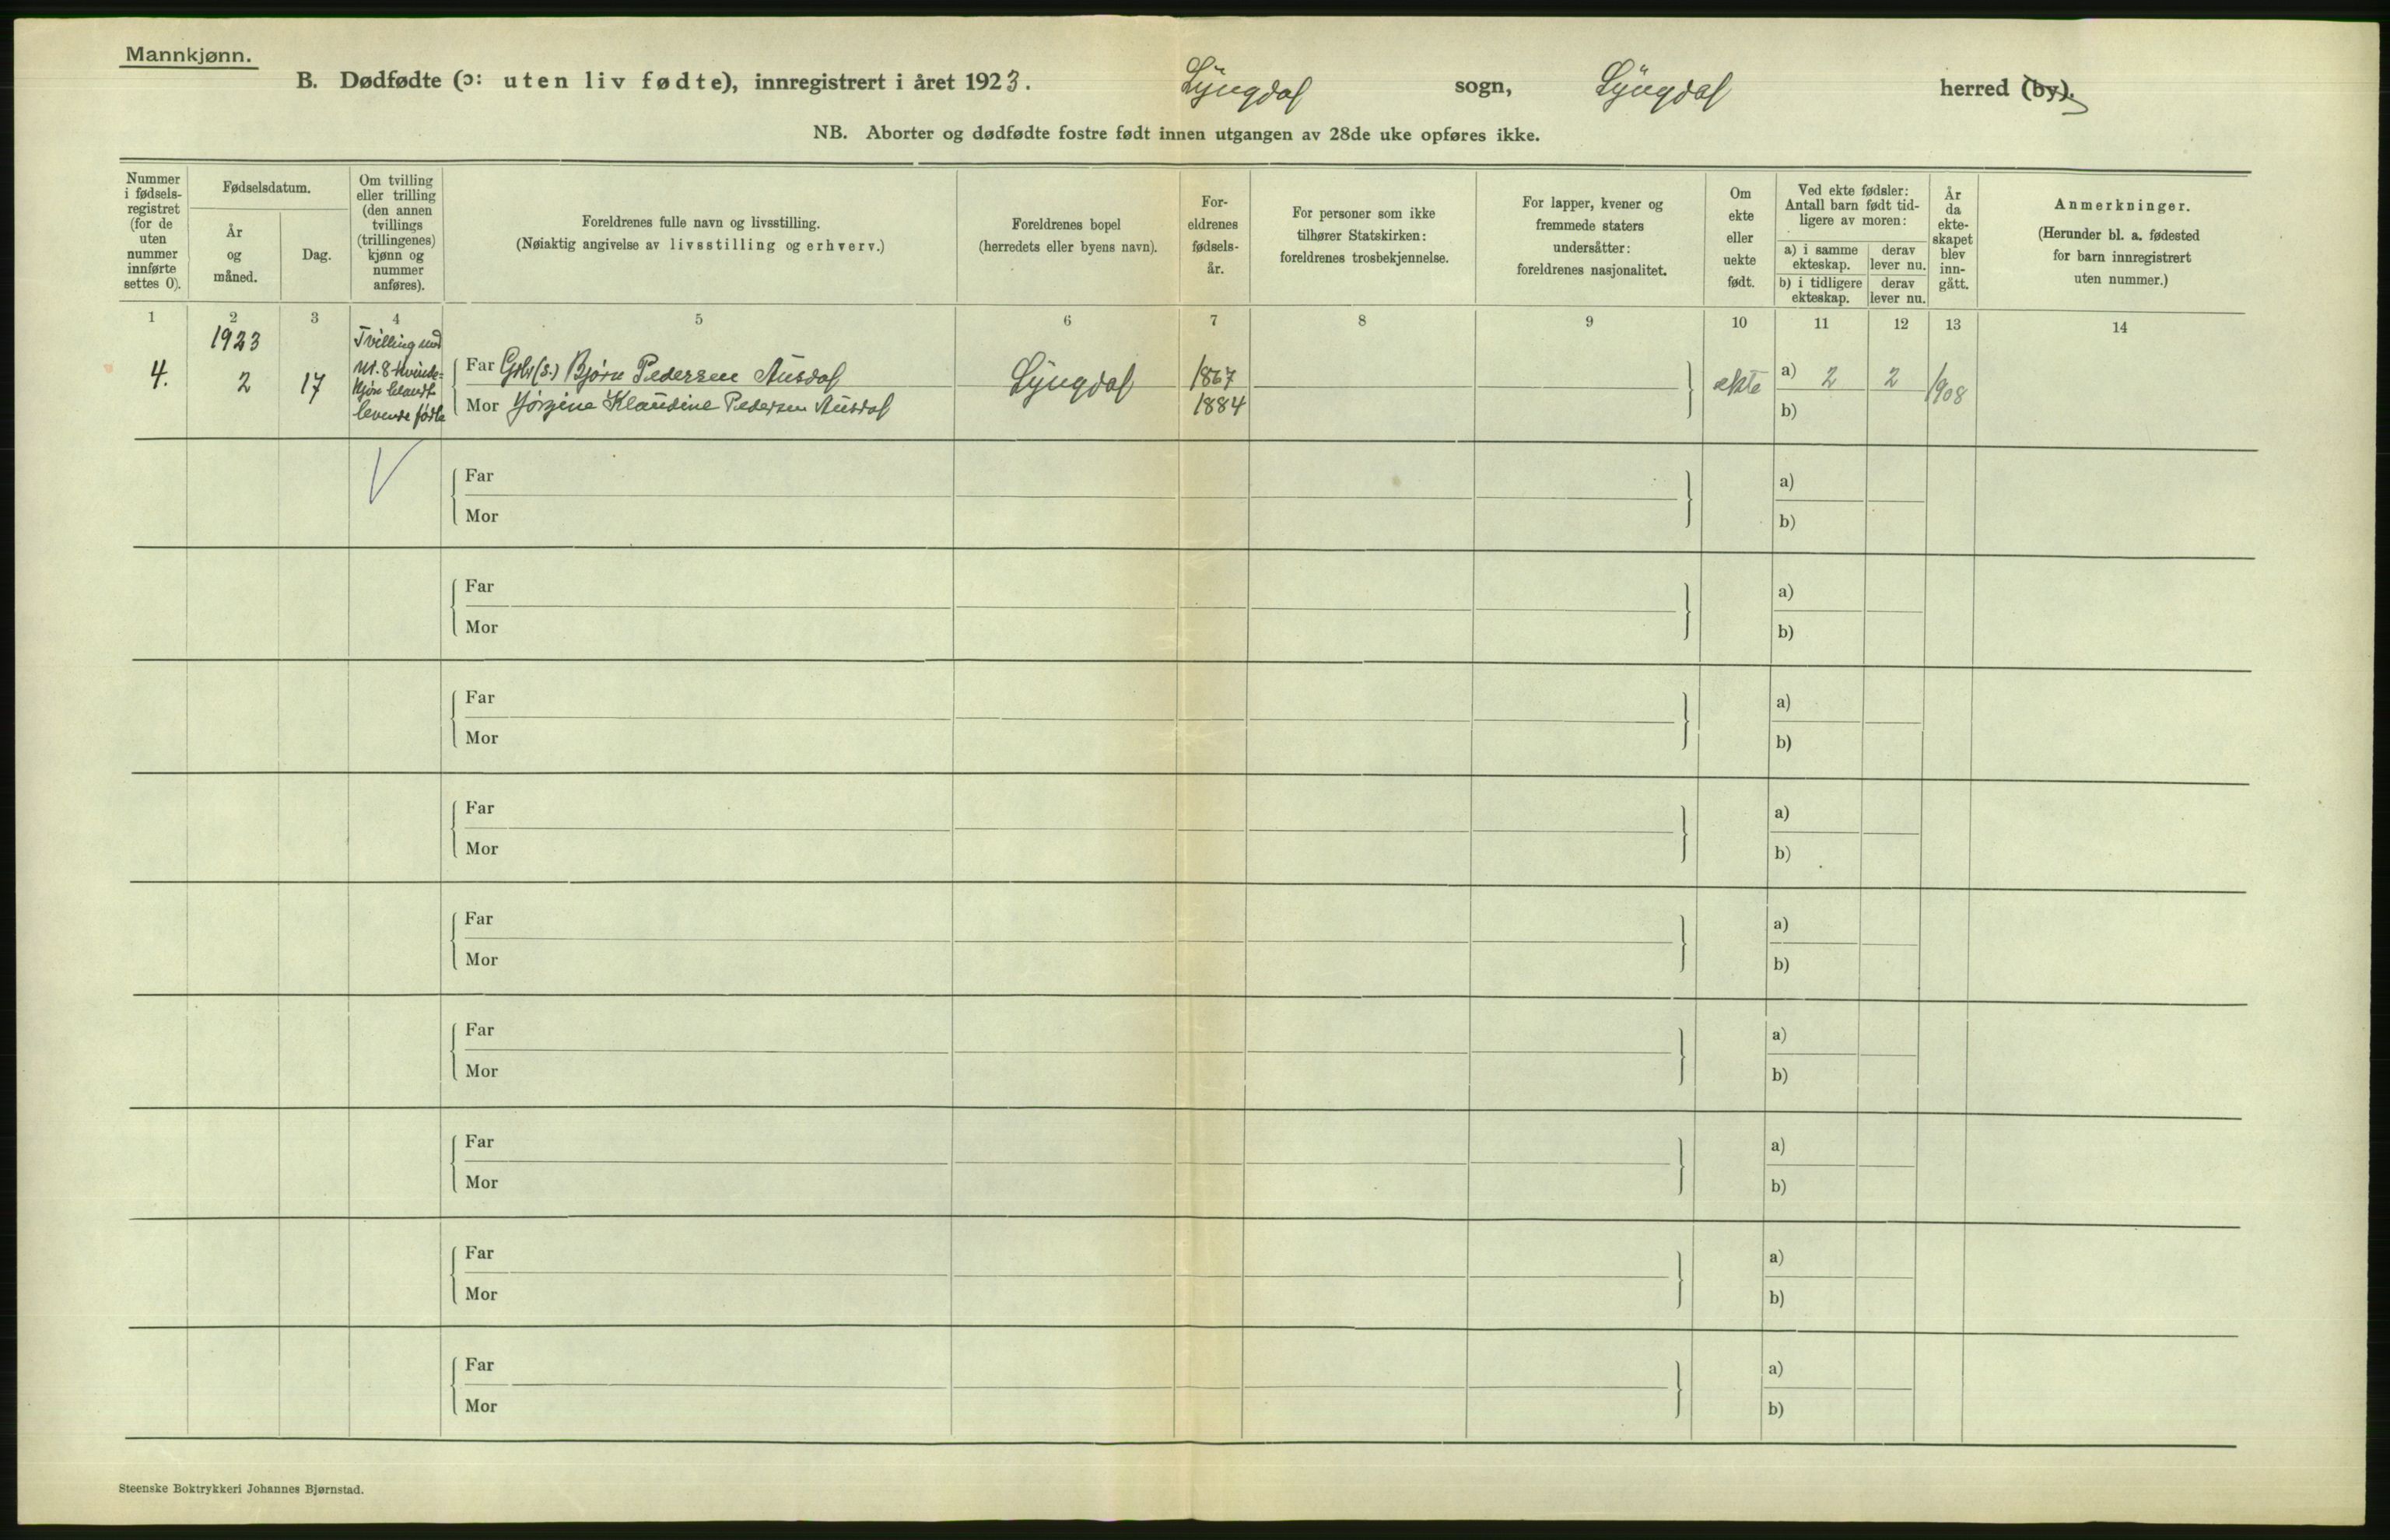 Mannkjønn.
B. Dødfødte (ɔ: uten liv fødte), innregistrert i året 1923. Lyngdal sogn, Lyngdal herred (by).
NB. Aborter og dødfødte fostre født innen utgangen av 28de uke opføres ikke.
Nummer
i fødsels-
registret
(for de
uten
nummer
innførte
settes 0).
Fødselsdatum.
År
og
måned.
Dag.
Om tvilling
eller trilling
(den annen
tvillings
(trillingenes)
kjønn og
nummer
anføres).
Foreldrenes fulle navn og livsstilling.
(Nøiaktig angivelse av livsstilling og erhverv.)
Foreldrenes bopel
(herredets eller byens navn).
For-
eldrenes
fødsels-
år.
For personer som ikke
tilhører Statskirken:
foreldrenes trosbekjennelse.
For lapper, kvener og
fremmede staters
undersåtter:
foreldrenes nasjonalitet.
Om
ekte
eller
uekte
født.
Ved ekte fødsler:
Antall barn født tid-
ligere av moren:
a) i samme
ekteskap.
derav
lever nu.
b) i tidligere
ekteskap.
derav
lever nu.
År
da
ekte-
skapet
blev
inn-
gått.
Anmerkninger.
(Herunder bl. a. fødested
for barn innregistrert
uten nummer.)
1 2 3 4 5 6 7 8 9 10 11 12 13 14
1923
4. 2 17
Tvilling med
Nr. 8 kvinde-
kjøn blandt
levende fødte
Far Grbr (s.) Bjørn Pedersen Ausdal
Mor Jörgine Klaudine Pedersen Ausdal
Lyngdal
1867
1884
ekte
a) 2 2 1908
b)
Far a)
Mor b)
Far a)
Mor b)
Far a)
Mor b)
Far a)
Mor b)
Far a)
Mor b)
Far a)
Mor b)
Far a)
Mor b)
Far a)
Mor b)
Far a)
Mor b)
Steenske Boktrykkeri Johannes Bjørnstad.